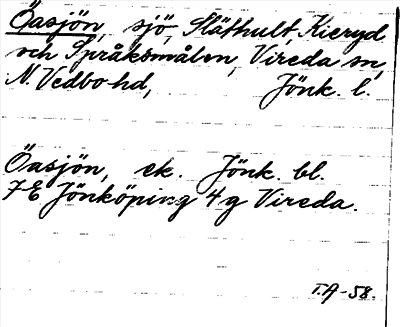 Öasjön, sjö, Släthult, Kieryd
och Språksmålen, Vireda sn,
N. Vedbo hd, Jönk. l.
Öasjön, ek. Jönk. bl.
7E Jönköping 4g Vireda.
T.A-58.